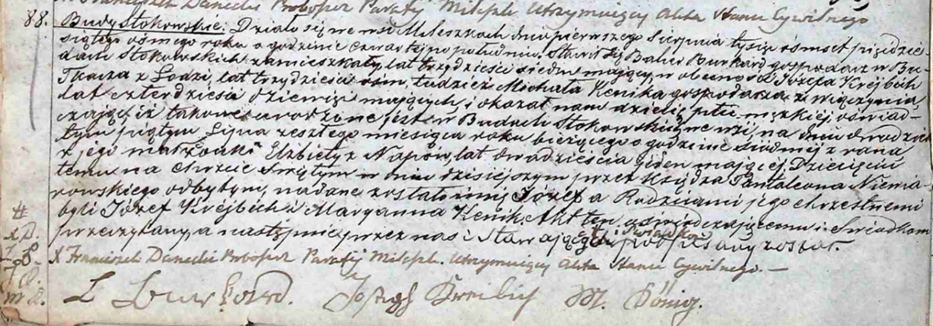 X Franciszek Danecki Proboszcz Parafij Mileszk. Utrzymuiący Akta Stanu Cywilnego
88. Budy Stokowskie. Działo się we wsi Mileszkach dnia pierwszego Sierpnia tysiąc ośmset pięćdzie-
siątego ósmego roku o godzinie czwartej po południu. Stawił się Burkard gospodarz w Bu-
dach Stokowskich zamieszkały, lat trzydzieści siedm mający, w obecności Józefa Krejbich
Tkacza z Łodzi, lat trzydzieści tudzież Michała Kenika gospodarza z Wiączynia,
lat czterdzieści dziewięć mających, i okazał nam dziecię płci męzkiej oświad-
czając iż takowe urodzone jest w Budach Stokowskich na dniu dwudzies-
tym piątym Lipca zeszłego miesiąca roku bieżącego o godzinie siódmej z rana
z jego małżonki Elżbiety z Napów, lat dwadzieścia jeden mającej. Dziecięciu
temu na Chrzcie Świętym w dniu dzisiejszym przez Księdza Pantaleona Niemia-
rowskiego odbytym, nadane zostało imię Józef a Rodzicami jego chrzestnemi
byli Józef Krejbich i Maryanna Kenik. Akt ten oświadczającemu i Świadkom
przeczytany, a następnie przez nas i Stawających podpisany został.
X Franciszek Danecki Proboszcz Parafij Mileszk. Utrzymuiący Akta Stanu Cywilnego.
L Burkard. Joseph Kreibich M. König.